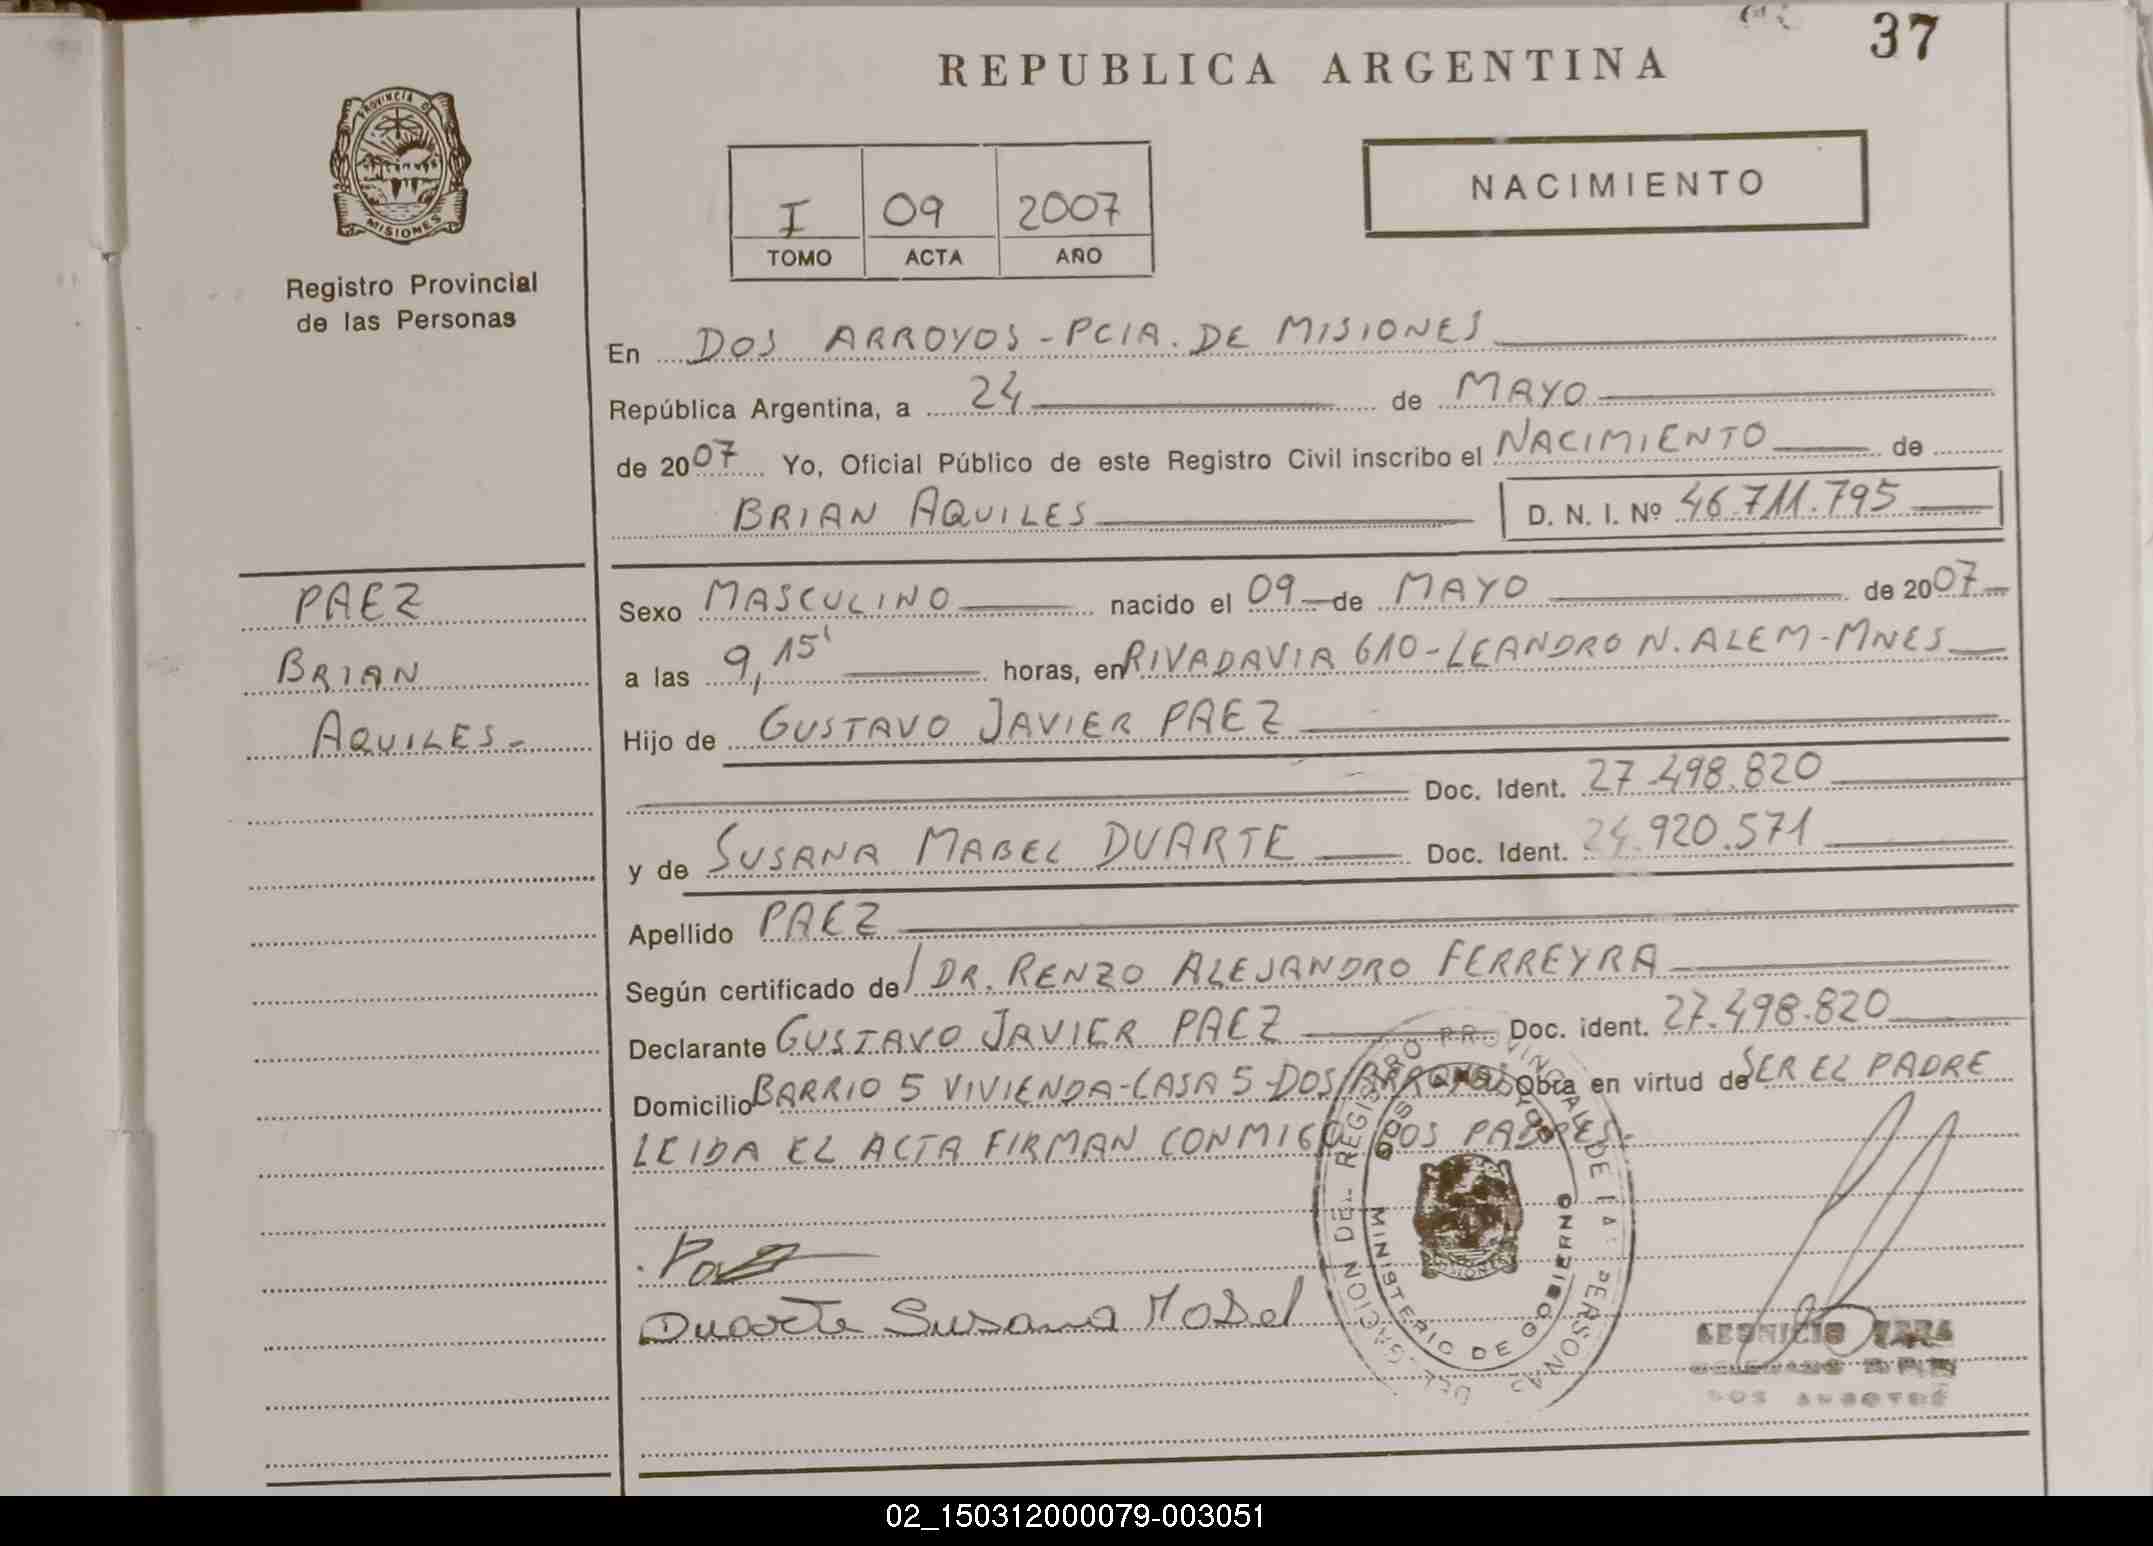 37
REPUBLICA ARGENTINA
PROVINCIA D
MISIONES
Registro Provincial
de las Personas
I 09 2007
TOMO ACTA AÑO
NACIMIENTO
En DOS ARROYOS - PCIA. DE MISIONES
República Argentina, a 24 de MAYO
de 2007 Yo, Oficial Público de este Registro Civil inscribo el NACIMIENTO de
BRIAN AQUILES D. N. I. Nº 46.711.795
PAEZ
BRIAN
AQUILES-
Sexo MASCULINO nacido el 09 de MAYO de 2007
a las 9,15' horas, en RIVADAVIA 610-LEANDRO N. ALEM-MNES
Hijo de GUSTAVO JAVIER PAEZ
Doc. Ident. 27.498.820
y de SUSANA MABEL DUARTE Doc. Ident. 24.920.571
Apellido PAEZ
Según certificado de DR. RENZO ALEJANDRO FERREYRA
Declarante GUSTAVO JAVIER PAEZ Doc. ident. 27.498.820
Domicilio BARRIO 5 VIVIENDA-CASA 5-DOS ARROYOS Obra en virtud de SER EL PADRE
LEIDA EL ACTA FIRMAN CONMIGO LOS PADRES-
DELEGACION DEL REGISTRO PROVINCIAL DE LAS PERSONAS
DOS ARROYOS
MINISTERIO DE GOBIERNO
MISIONES
Duarte Susana Mabel
DOS ARROYOS
02_150312000079-003051